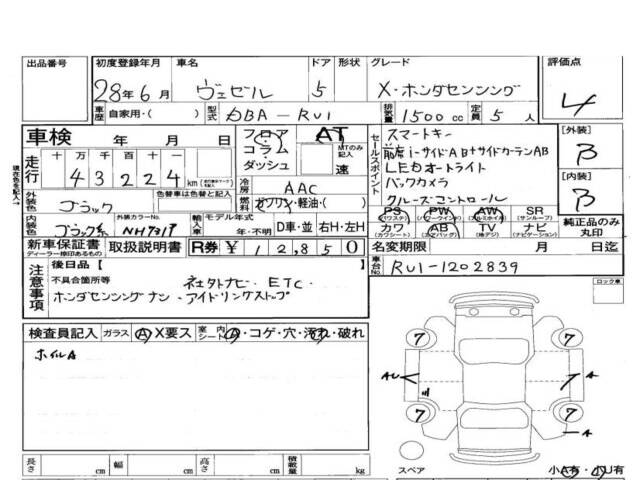 出品番号 初度登録年月 車名 ドア 形状 グレード 評価点
28年6月 ヴェゼル 5 X・ホンダセンシング 4
車歴 自家用・( ) 型式 DBA-RU1 排気量 1500cc 定員 5人
車検 年 月 日 フロア AT セールスポイント スマートキー [外装]
コラム MTのみ記入 前席i-サイドAB+サイドカーテンAB B
走行 十 万 千 百 十 一 ダッシュ 速 LEDオートライト
43224 km 冷房 AAC バックカメラ [内装]
外装色 色替車は色替と記入 燃料 ガソリン・軽油・( ) クルーズコントロール B
ブラック PS PW AW SR
(パワステ) (パワーウインド) (アルミホイル) (サンルーフ)
内装色 外装カラーNo. 輸入車 モデル年式 カワ AB TV ナビ 純正品のみ丸印
ブラック系 NH731P 年・不明 D車・並 右H・左H (カワシート) (エアバッグ) (地デジ) (ナビゲーション)
新車保証書 取扱説明書 R券 ¥12,850 名変期限 月 日迄
ディーラー捺印あるもの
車台No. RU1-1202839
注意事項 後日品( )
不具合箇所等 ETC・
ホンダセンシングナシ・アイドリングストップ
ロック車
検査員記入 ガラス A X要ス 室内シート A・コゲ・穴・汚れ・破れ
ホイルA
7 7
AU A
7 7
A
長さ cm 幅 cm 高さ cm 積載量 kg
スペア 小A有・小U有